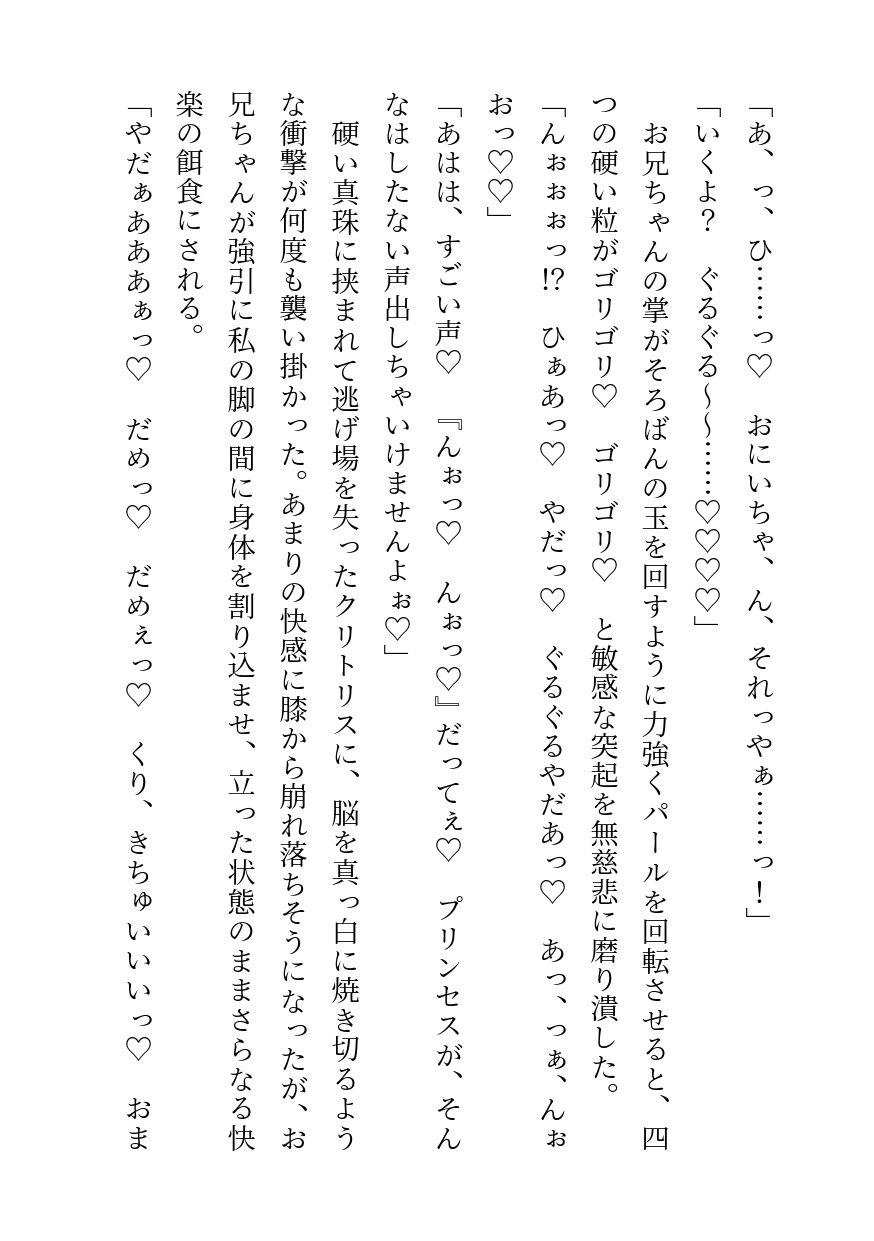 「あ、っ、ひ……っ♡　おにいちゃ、ん、それっやぁ……っ！」
「いくよ？　ぐるぐる～～……♡♡♡♡」
　お兄ちゃんの掌がそろばんの玉を回すように力強くパールを回転させると、四
つの硬い粒がゴリゴリ♡　ゴリゴリ♡　と敏感な突起を無慈悲に磨り潰した。
「んぉぉぉっ⁉　ひぁあっ♡　やだっ♡　ぐるぐるやだあっ♡　あっ、っぁ、んぉ
おっ♡♡」
「あはは、すごい声♡　『んぉっ♡　んぉっ♡』だってぇ♡　プリンセスが、そん
なはしたない声出しちゃいけませんよぉ♡」
　硬い真珠に挟まれて逃げ場を失ったクリトリスに、脳を真っ白に焼き切るよう
な衝撃が何度も襲い掛かった。あまりの快感に膝から崩れ落ちそうになったが、お
兄ちゃんが強引に私の脚の間に身体を割り込ませ、立った状態のままさらなる快
楽の餌食にされる。
「やだぁあああぁっ♡　だめっ♡　だめぇっ♡　くり、きちゅいいいっ♡　おま